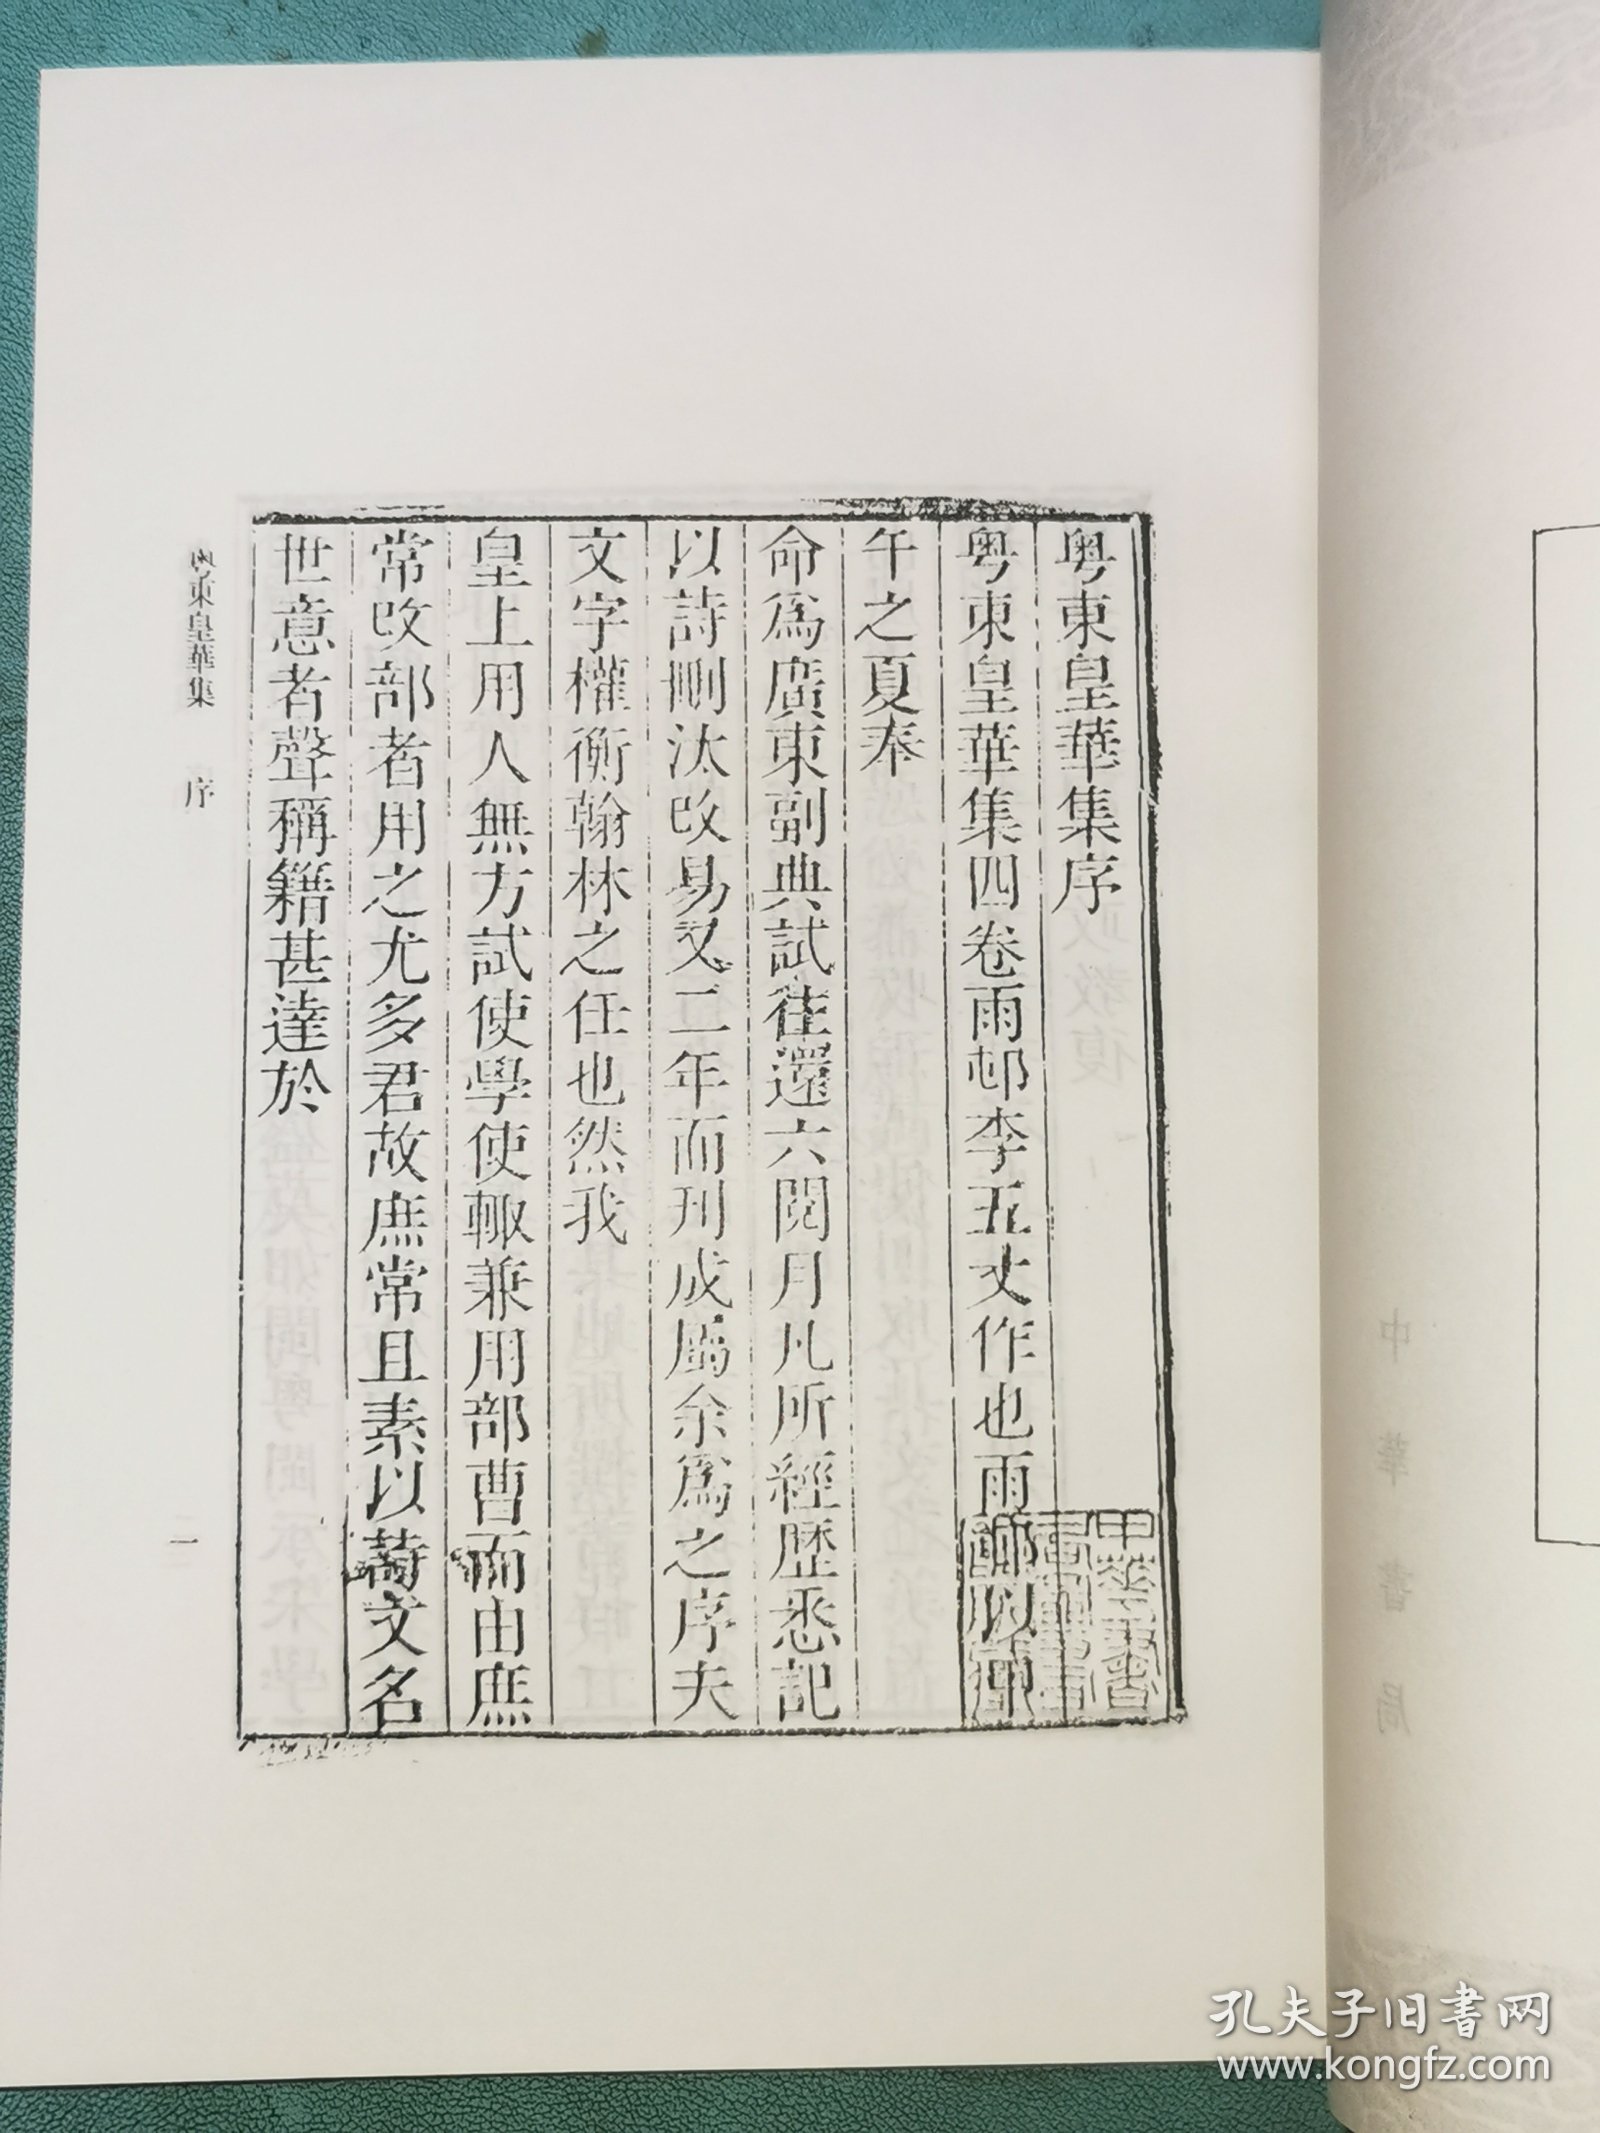 粤東皇華集序
粤東皇華集四卷雨邨李五丈作也雨
午之夏奉
命爲廣東副典試往還六閱月凡所經歷悉記
以詩刪汰改易又二年而刊成屬余爲之序夫
文字權衡翰林之任也然我
皇上用人無方試使學使輙兼用部曹而由庶
常改部者用之尤多君故庶常且素以詩文名
世意者聲稱籍甚達於
粵東皇華集 序
一
中華書局
孔夫子旧书网
www.kongfz.com